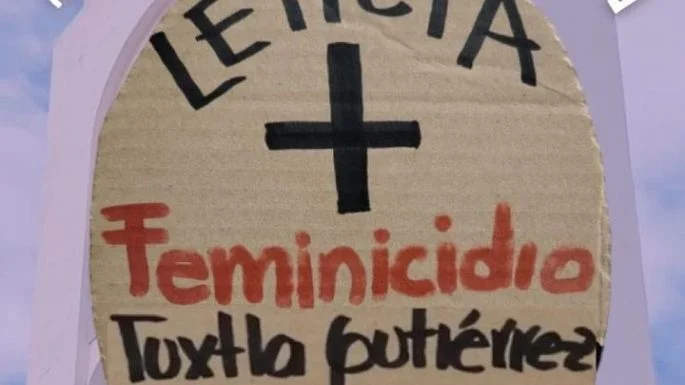 LETICIA
Feminicidio
Tuxtla Gutiérrez